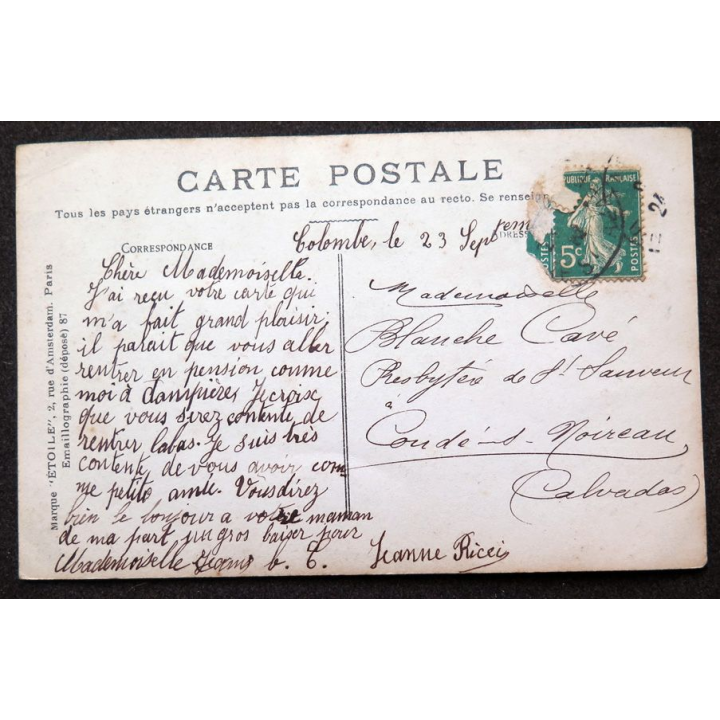 CARTE POSTALE
Tous les pays étrangers n'acceptent pas la correspondance au recto. Se renseign
CORRESPONDANCE
ADRESS
Marque "ÉTOILE", 2, rue d'Amsterdam, Paris
Emaillographie (déposé) 87
RÉPUBLIQUE FRANÇAISE
POSTES 5c POSTES
24
Colombe, le 23 Septem
Chère Mademoiselle.
J'ai reçu votre carte qui
m'a fait grand plaisir
il parait que vous aller
rentrer en pension comme
moi à dampière, Je croise
que vous sirez contente de
rentrer labas. Je suis très
contente de vous avoir com
me petite amie. Vous direz
bien le bonjour a votre maman
de ma part, un gros baiser pour
Mademoiselle b. C. Jeanne Ricci
Mademoiselle
Blanche Cavé
Presbytéré de St Sauveur
à
Conde-s-Noireau
(Calvados)